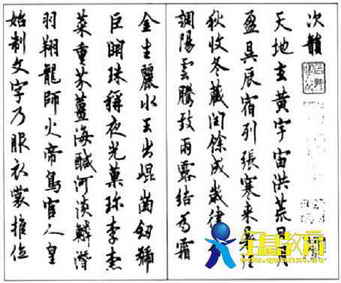 次韻
天地玄黃宇宙洪荒日月
盈昃辰宿列張寒來暑往
秋收冬藏閏餘成歲律呂
調陽雲騰致雨露結為霜
金生麗水玉出崐崗劍號
巨闕珠稱夜光菓珍李柰
菜重芥薑海鹹河淡鱗潛
羽翔龍師火帝鳥官人皇
始制文字乃服衣裳推位
教育